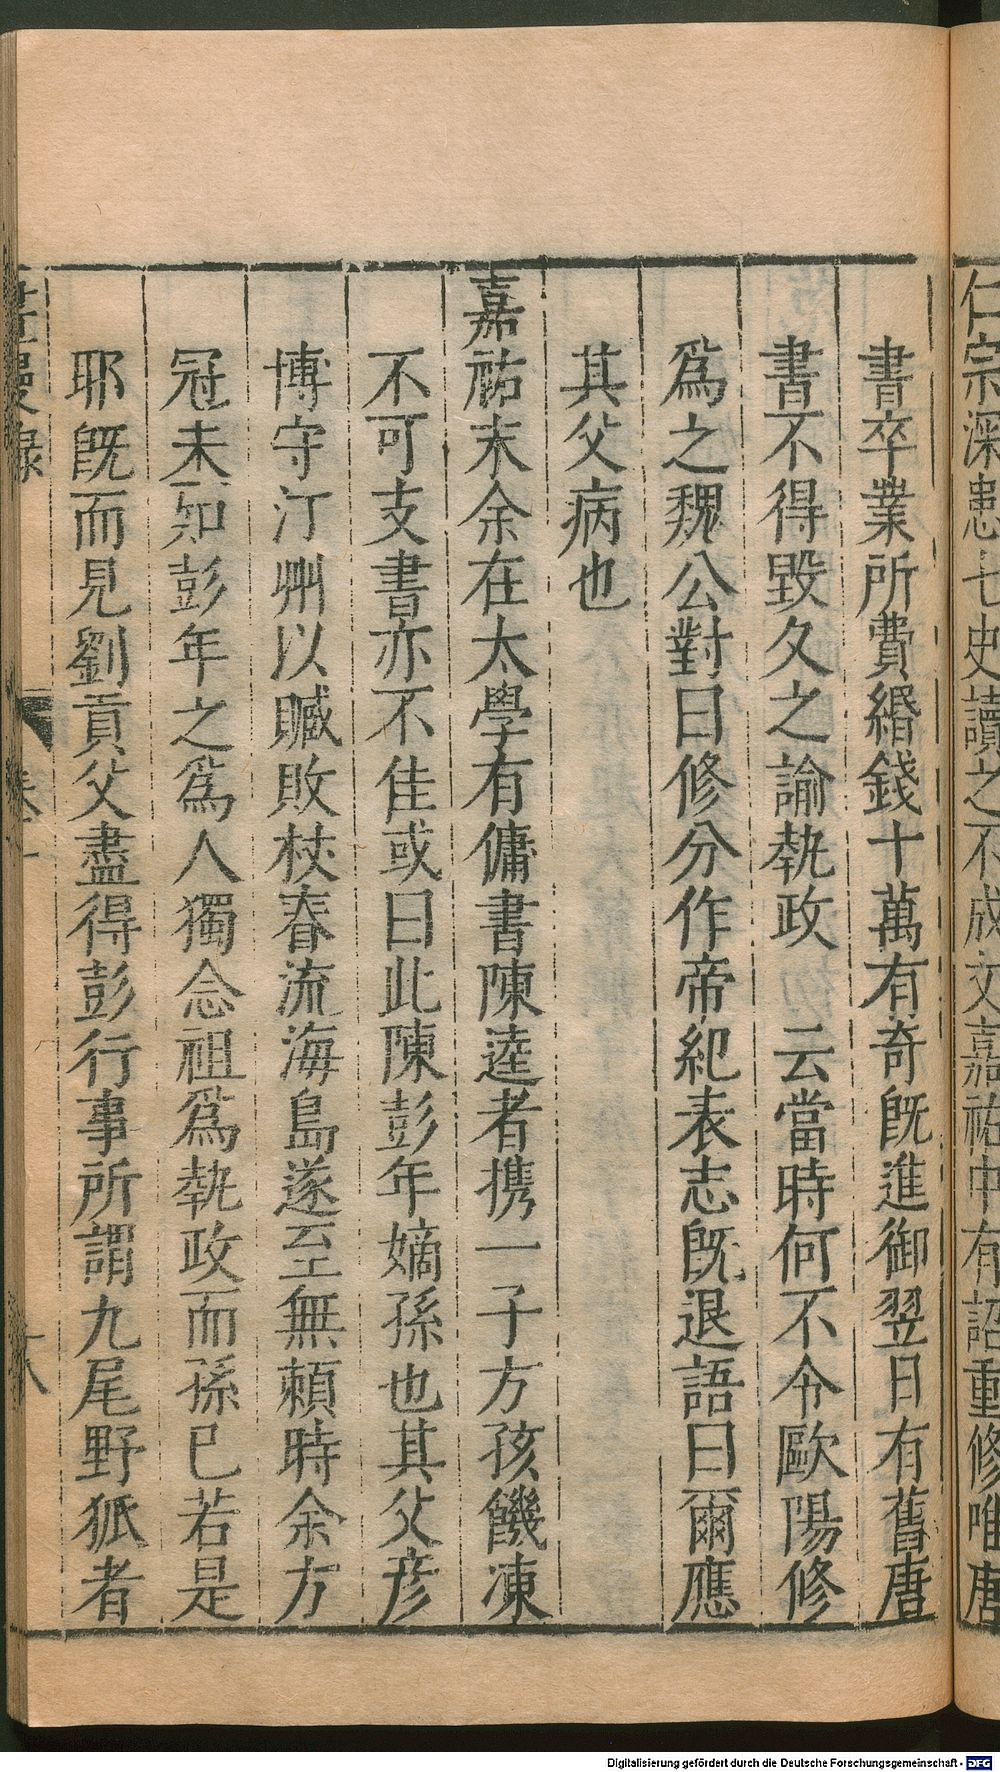 仁宗深患七史讀之不成文嘉祐中有詔重修唯唐
書卒業所費緡錢十萬有奇旣進御翌日有舊唐
書不得毀久之諭執政 云當時何不令歐陽修
爲之魏公對曰修分作帝紀表志旣退語曰爾應
其父病也
嘉祐末余在太學有傭書陳逵者携一子方孩饑凍
不可支書亦不佳或曰此陳彭年嫡孫也其父彦
博守汀州以贓敗杖春流海島遂至無賴時余方
冠未知彭年之爲人獨念祖爲執政而孫已若是
耶旣而見劉貢父盡得彭行事所謂九尾野狐者
漫錄
Digitalisierung gefördert durch die Deutsche Forschungsgemeinschaft - DFG